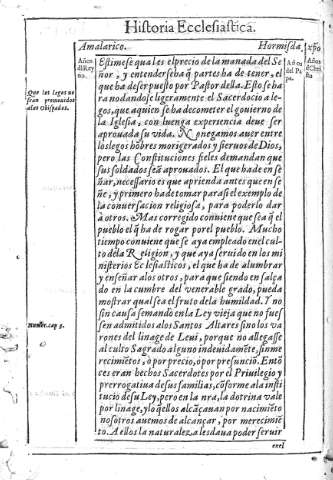 Historia Ecclesiastica.
Amalarico. Hormisda xp̃o
Años
del Rey
no.
Años
del Pa
pa.
Años
de Chri
sto
Estimese qual es el precio de la manada del Se
ñor, y entendersehа q̃ partes ha de tener, el
que ha de ser puesto por Pastor della. Esto se ha
ra no dandose ligeramente el Sacerdocio a le-
gos, que a quien se ha de cometer el gouierno de
la Iglesia, con luenga experiencia deue ser
aprouada su vida. No negamos auer entre
los legos hõbres morigerados y sieruos de Dios,
pero las Constituciones fieles demandan que
sus soldados seã aprouados. El que ha de en se
ñar, necessario es que aprienda antes que en se
ñe, y primero ha de tomar para si exemplo de
la conuersacion religiosa, para poderlo dar
à otros. Mas corregido conuiene que sea q̃ el
pueblo el q̃ ha de rogar por el pueblo. Mucho
tiempo conuiene que se aya empleado en el cul-
to dela Religion, y que aya seruido en los mi
nisterios Ecclesiasticos, el que ha de alumbrar
y enseñar alos otros, para que siendo en salça
do en la cumbre del venerable grado, pueda
mostrar qual sea el fruto de la humildad. Y no
sin causa se mando en la Ley vieja que no fues
sen admitidos alos Santos Altares sino los va
rones del linage de Leui, porque no allegasse
al culto Sagrado alguno indeuidamẽte, sin me
recimiẽtos, ò por precio, ò por presunciõ. Entõ
ces eran hechos Sacerdotes por el Priuilegio y
prerrogatiua de sus familias, cõforme a la insti
tucio de su Ley, pero en la nr̃a, la dotrina vale
por linage, y lo q̃ ellos alcãçanan por nacimiẽto
nosotros auemos de alcançar, por merecimiẽ
to. A ellos la naturaleza les daua poder seruir
enel
Que los legos no
sean promouidos
a los Obispados.
Numer. cap 3.